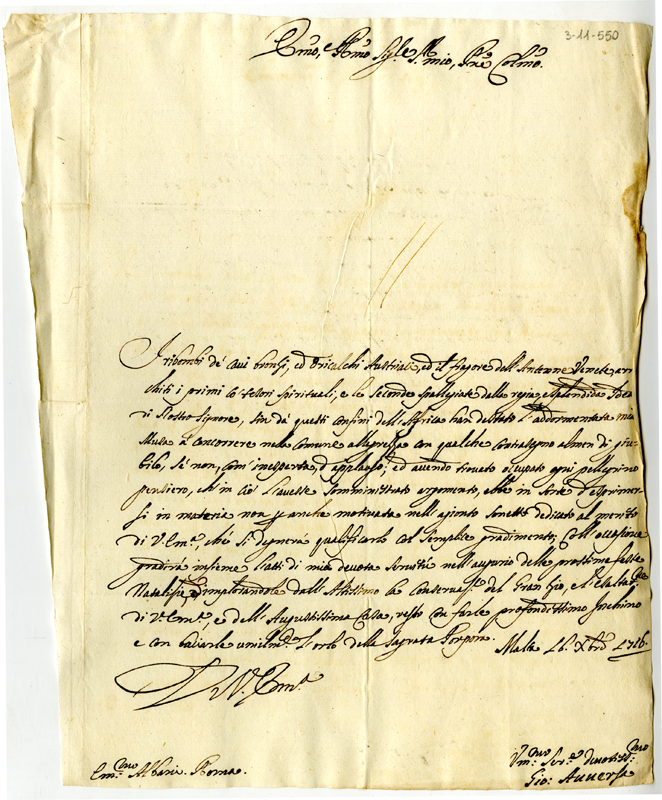 3-11-550
Emo, e Rmo Sig.e S. mio, Pne Colmo.
I ribombi de' cavi bronsi, ed Oricalchi Austriaci, ed il fragore dell'Antenne Venete, arri
chiti i primi co' tesori spirituali, e le seconde spalleggiate dalla regia, e splendida Idea
di Nostro Signore, sin da' questi confini dell'Africa han destato l'addormentata mia
Musa à concorrere nella comune allegrezza con qualche contrasegno almen di giu-
bilo, se' non, com'inesperta, d'applauso; ed avendo trovato occupato ogni pellegrino
pensiero, ch'in ciò l'avesse somministrato argomento, ebbe in sorte d'esprimer-
si in materia non anche motivata nell'agionto sonetto dedicato al merito
di V. Em.a, che si degnerà qualificarlo col semplice gradimento; Coll'occasione
gradirà insieme l'atti di mia devota servitù nell'augurio delle prossime feste
Natalizie, Implorandole dall'Altissimo la conservaz.e del Gran Gio, e l'
di V. Em.a, e dell'Augustissima Casa, resto con farle profondissimo Inchino
e con baciarle umilm.e l'orlo della sagrata Porpora. Malta 16. Xbre 1716.
D V. Em.a
Em.mo Albani Roma.
Um.mo Ser.e devotis.mo
Gio: Auversa